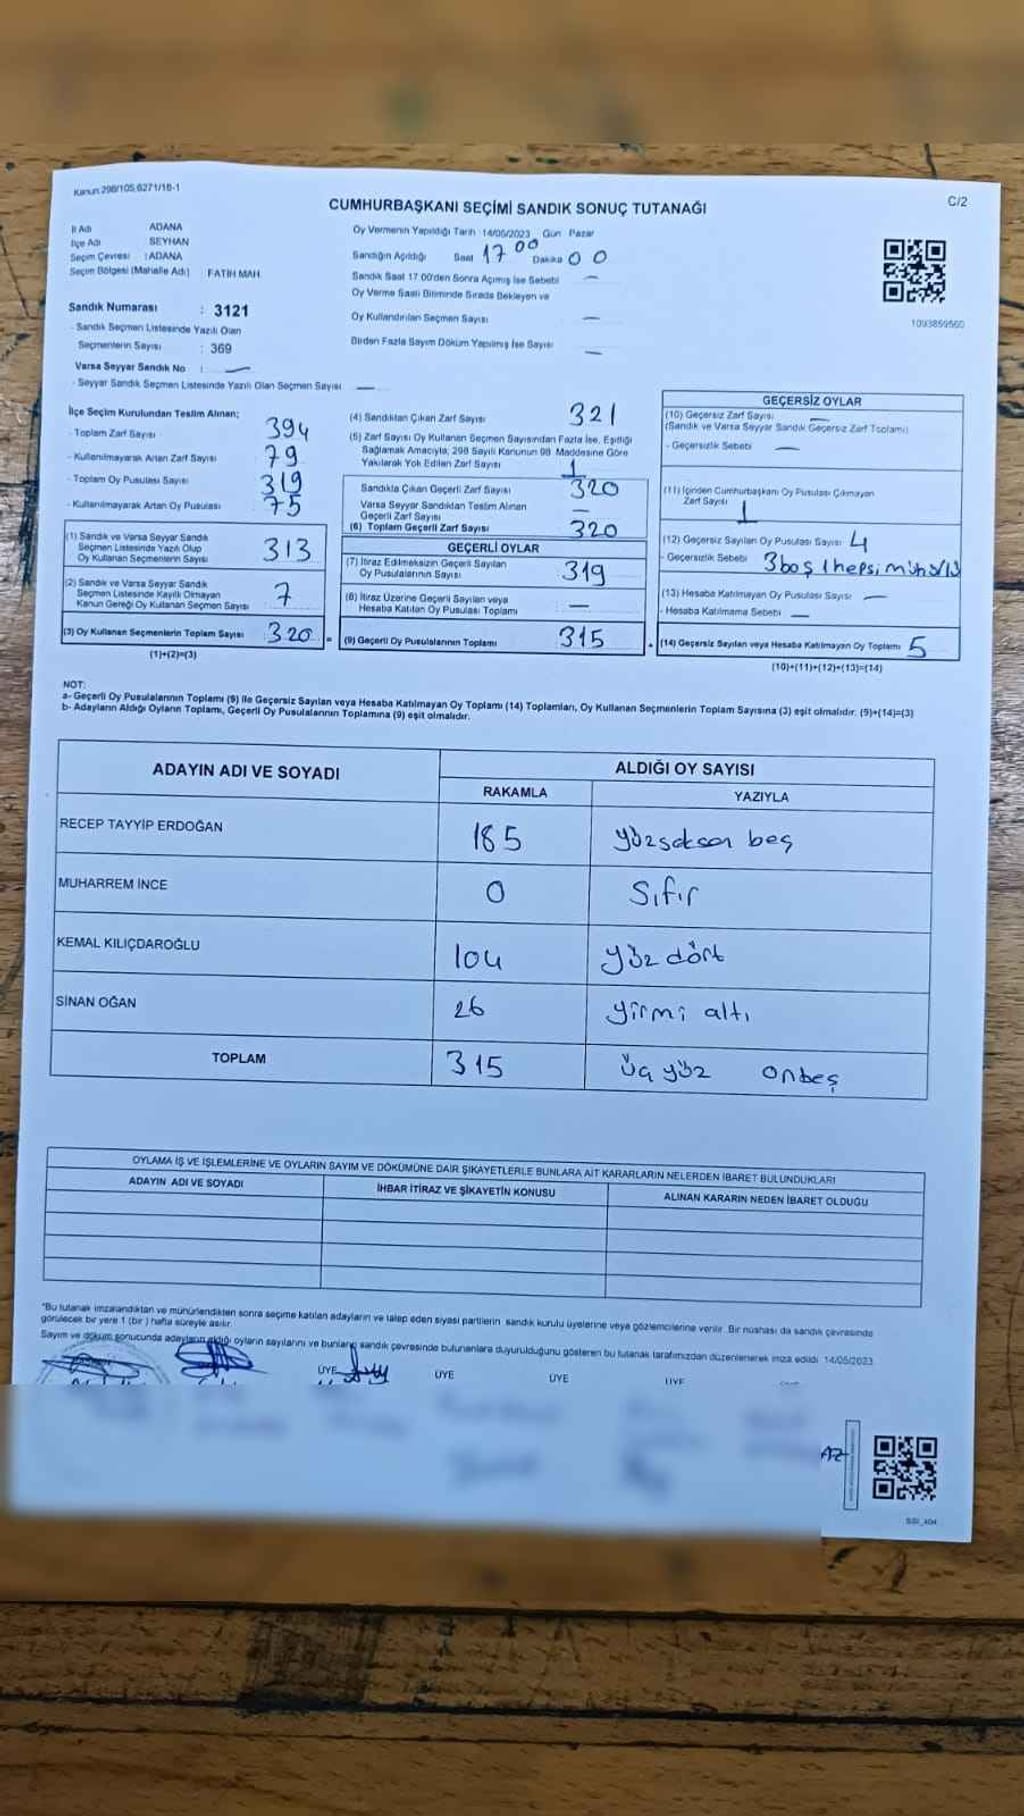 Kanun 298/105,6271/18-1
C/2
CUMHURBAŞKANI SEÇİMİ SANDIK SONUÇ TUTANAĞI
İl Adı ADANA
İlçe Adı SEYHAN
Seçim Çevresi : ADANA
Seçim Bölgesi (Mahalle Adı) FATİH MAH.
Sandık Numarası : 3121
- Sandık Seçmen Listesinde Yazılı Olan
Seçmenlerin Sayısı : 369
Varsa Seyyar Sandık No : —
- Seyyar Sandık Seçmen Listesinde Yazılı Olan Seçmen Sayısı —
Oy Vermenin Yapıldığı Tarih 14/05/2023 Gün Pazar
Sandığın Açıldığı Saat 17 00 Dakika 0 0
Sandık Saat 17.00'den Sonra Açımış İse Sebebi —
Oy Verme Saati Bitiminde Sırada Bekleyen ve
Oy Kullandırılan Seçmen Sayısı —
Birden Fazla Sayım Döküm Yapılmış İse Sayısı —
1093859560
İlçe Seçim Kurulundan Teslim Alınan;
- Toplam Zarf Sayısı 394
- Kullanılmayarak Artan Zarf Sayısı 79
- Toplam Oy Pusulası Sayısı 319
- Kullanılmayarak Artan Oy Pusulası 75
(1) Sandık ve Varsa Seyyar Sandık
Seçmen Listesinde Yazılı Olup
Oy Kullanan Seçmenlerin Sayısı 313
(2) Sandık ve Varsa Seyyar Sandık
Seçmen Listesinde Kayıtlı Olmayan
Kanun Gereği Oy Kullanan Seçmen Sayısı 7
(3) Oy Kullanan Seçmenlerin Toplam Sayısı 320 =
(1)+(2)=(3)
(4) Sandıktan Çıkan Zarf Sayısı 321
(5) Zarf Sayısı Oy Kullanan Seçmen Sayısından Fazla İse, Eşitliği
Sağlamak Amacıyla, 298 Sayılı Kanunun 98 Maddesine Göre
Yakılarak Yok Edilen Zarf Sayısı 1
Sandıkta Çıkan Geçerli Zarf Sayısı 320
Varsa Seyyar Sandıktan Teslim Alınan
Geçerli Zarf Sayısı —
(6) Toplam Geçerli Zarf Sayısı 320
GEÇERLİ OYLAR
(7) İtiraz Edilmeksizin Geçerli Sayılan
Oy Pusulalarının Sayısı 319
(8) İtiraz Üzerine Geçerli Sayılan veya
Hesaba Katılan Oy Pusulası Toplamı —
(9) Geçerli Oy Pusulalarının Toplamı 315
GEÇERSİZ OYLAR
(10) Geçersiz Zarf Sayısı —
(Sandık ve Varsa Seyyar Sandık Geçersiz Zarf Toplamı)
- Geçersizlik Sebebi —
(11) İçinden Cumhurbaşkanı Oy Pusulası Çıkmayan
Zarf Sayısı 1
(12) Geçersiz Sayılan Oy Pusulası Sayısı 4
- Geçersizlik Sebebi 3 boş 1 hepsi mühürlü
(13) Hesaba Katılmayan Oy Pusulası Sayısı —
- Hesaba Katılmama Sebebi —
(14) Geçersiz Sayılan veya Hesaba Katılmayan Oy Toplamı 5
(10)+(11)+(12)+(13)=(14)
NOT:
a- Geçerli Oy Pusulalarının Toplamı (9) ile Geçersiz Sayılan veya Hesaba Katılmayan Oy Toplamı (14) Toplamları, Oy Kullanan Seçmenlerin Toplam Sayısına (3) eşit olmalıdır. (9)+(14)=(3)
b- Adayların Aldığı Oyların Toplamı, Geçerli Oy Pusulalarının Toplamına (9) eşit olmalıdır.
ADAYIN ADI VE SOYADI
ALDIĞI OY SAYISI
RAKAMLA YAZIYLA
RECEP TAYYİP ERDOĞAN 185 yüzseksen beş
MUHARREM İNCE 0 Sıfır
KEMAL KILIÇDAROĞLU 104 yüz dört
SİNAN OĞAN 26 yirmi altı
TOPLAM 315 üç yüz onbeş
OYLAMA İŞ VE İŞLEMLERİNE VE OYLARIN SAYIM VE DÖKÜMÜNE DAİR ŞİKAYETLERLE BUNLARA AİT KARARLARIN NELERDEN İBARET BULUNDUKLARI
ADAYIN ADI VE SOYADI İHBAR İTİRAZ VE ŞİKAYETİN KONUSU ALINAN KARARIN NEDEN İBARET OLDUĞU
*Bu tutanak imzalandıktan ve mühürlendikten sonra seçime katılan adayların ve talep eden siyasi partilerin sandık kurulu üyelerine veya gözlemcilerine verilir. Bir nüshası da sandık çevresinde
görülecek bir yere 1 (bir) hafta süreyle asılır.
Sayım ve döküm sonucunda adayların aldığı oyların sayılarını ve bunların sandık çevresinde bulunanlara duyurulduğunu gösteren bu tutanak tarafımızdan düzenlenerek imza edildi 14/05/2023
ÜYE ÜYE ÜYE ÜYE